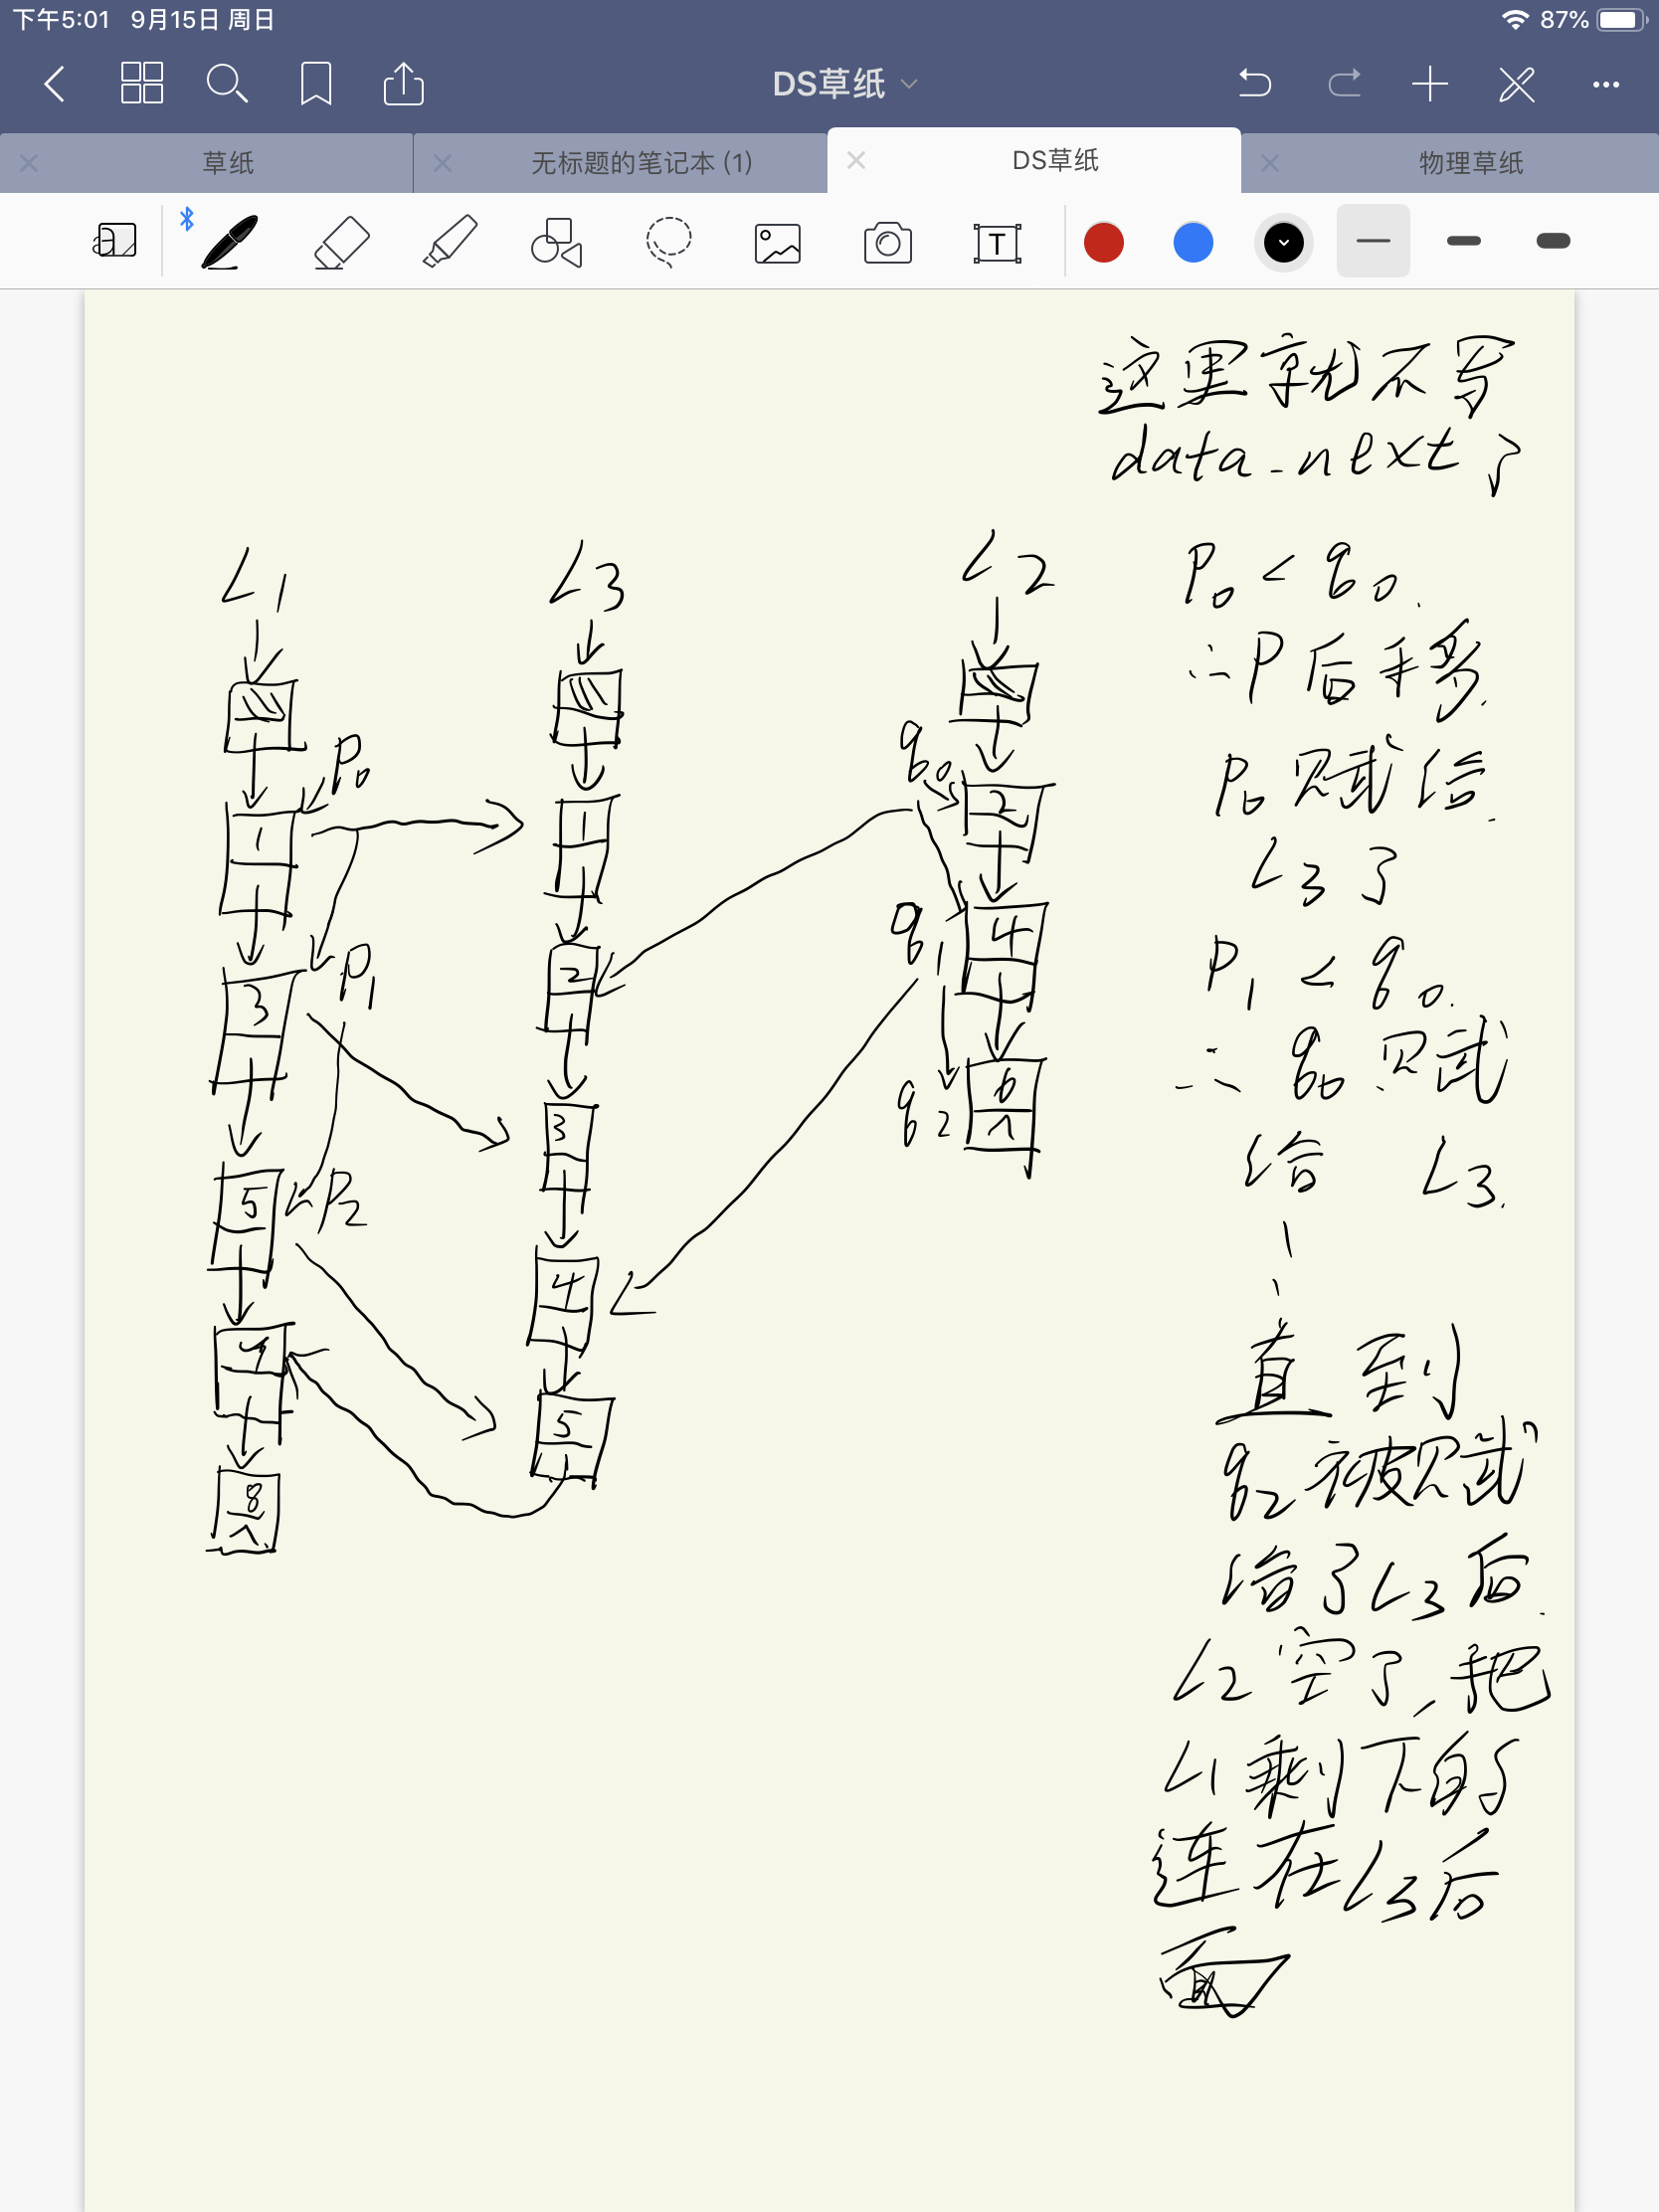 下午5:01 9月15日 周日
87%
DS草纸
草纸
无标题的笔记本 (1)
DS草纸
物理草纸
T
这里就不写
data_next了
L1
L3
L2
P0 < q0.
∴P后移.
P0赋给.
L3了
P1 < q0.
∴ q0赋
给 L3.
直到
q2被赋
给了L3后.
L2空了,把
L1剩下的
连在L3后
面
P0
1
P1
3
P2
5
8
^
1
2
3
4
5
q0
2
q1
4
q2
6
^